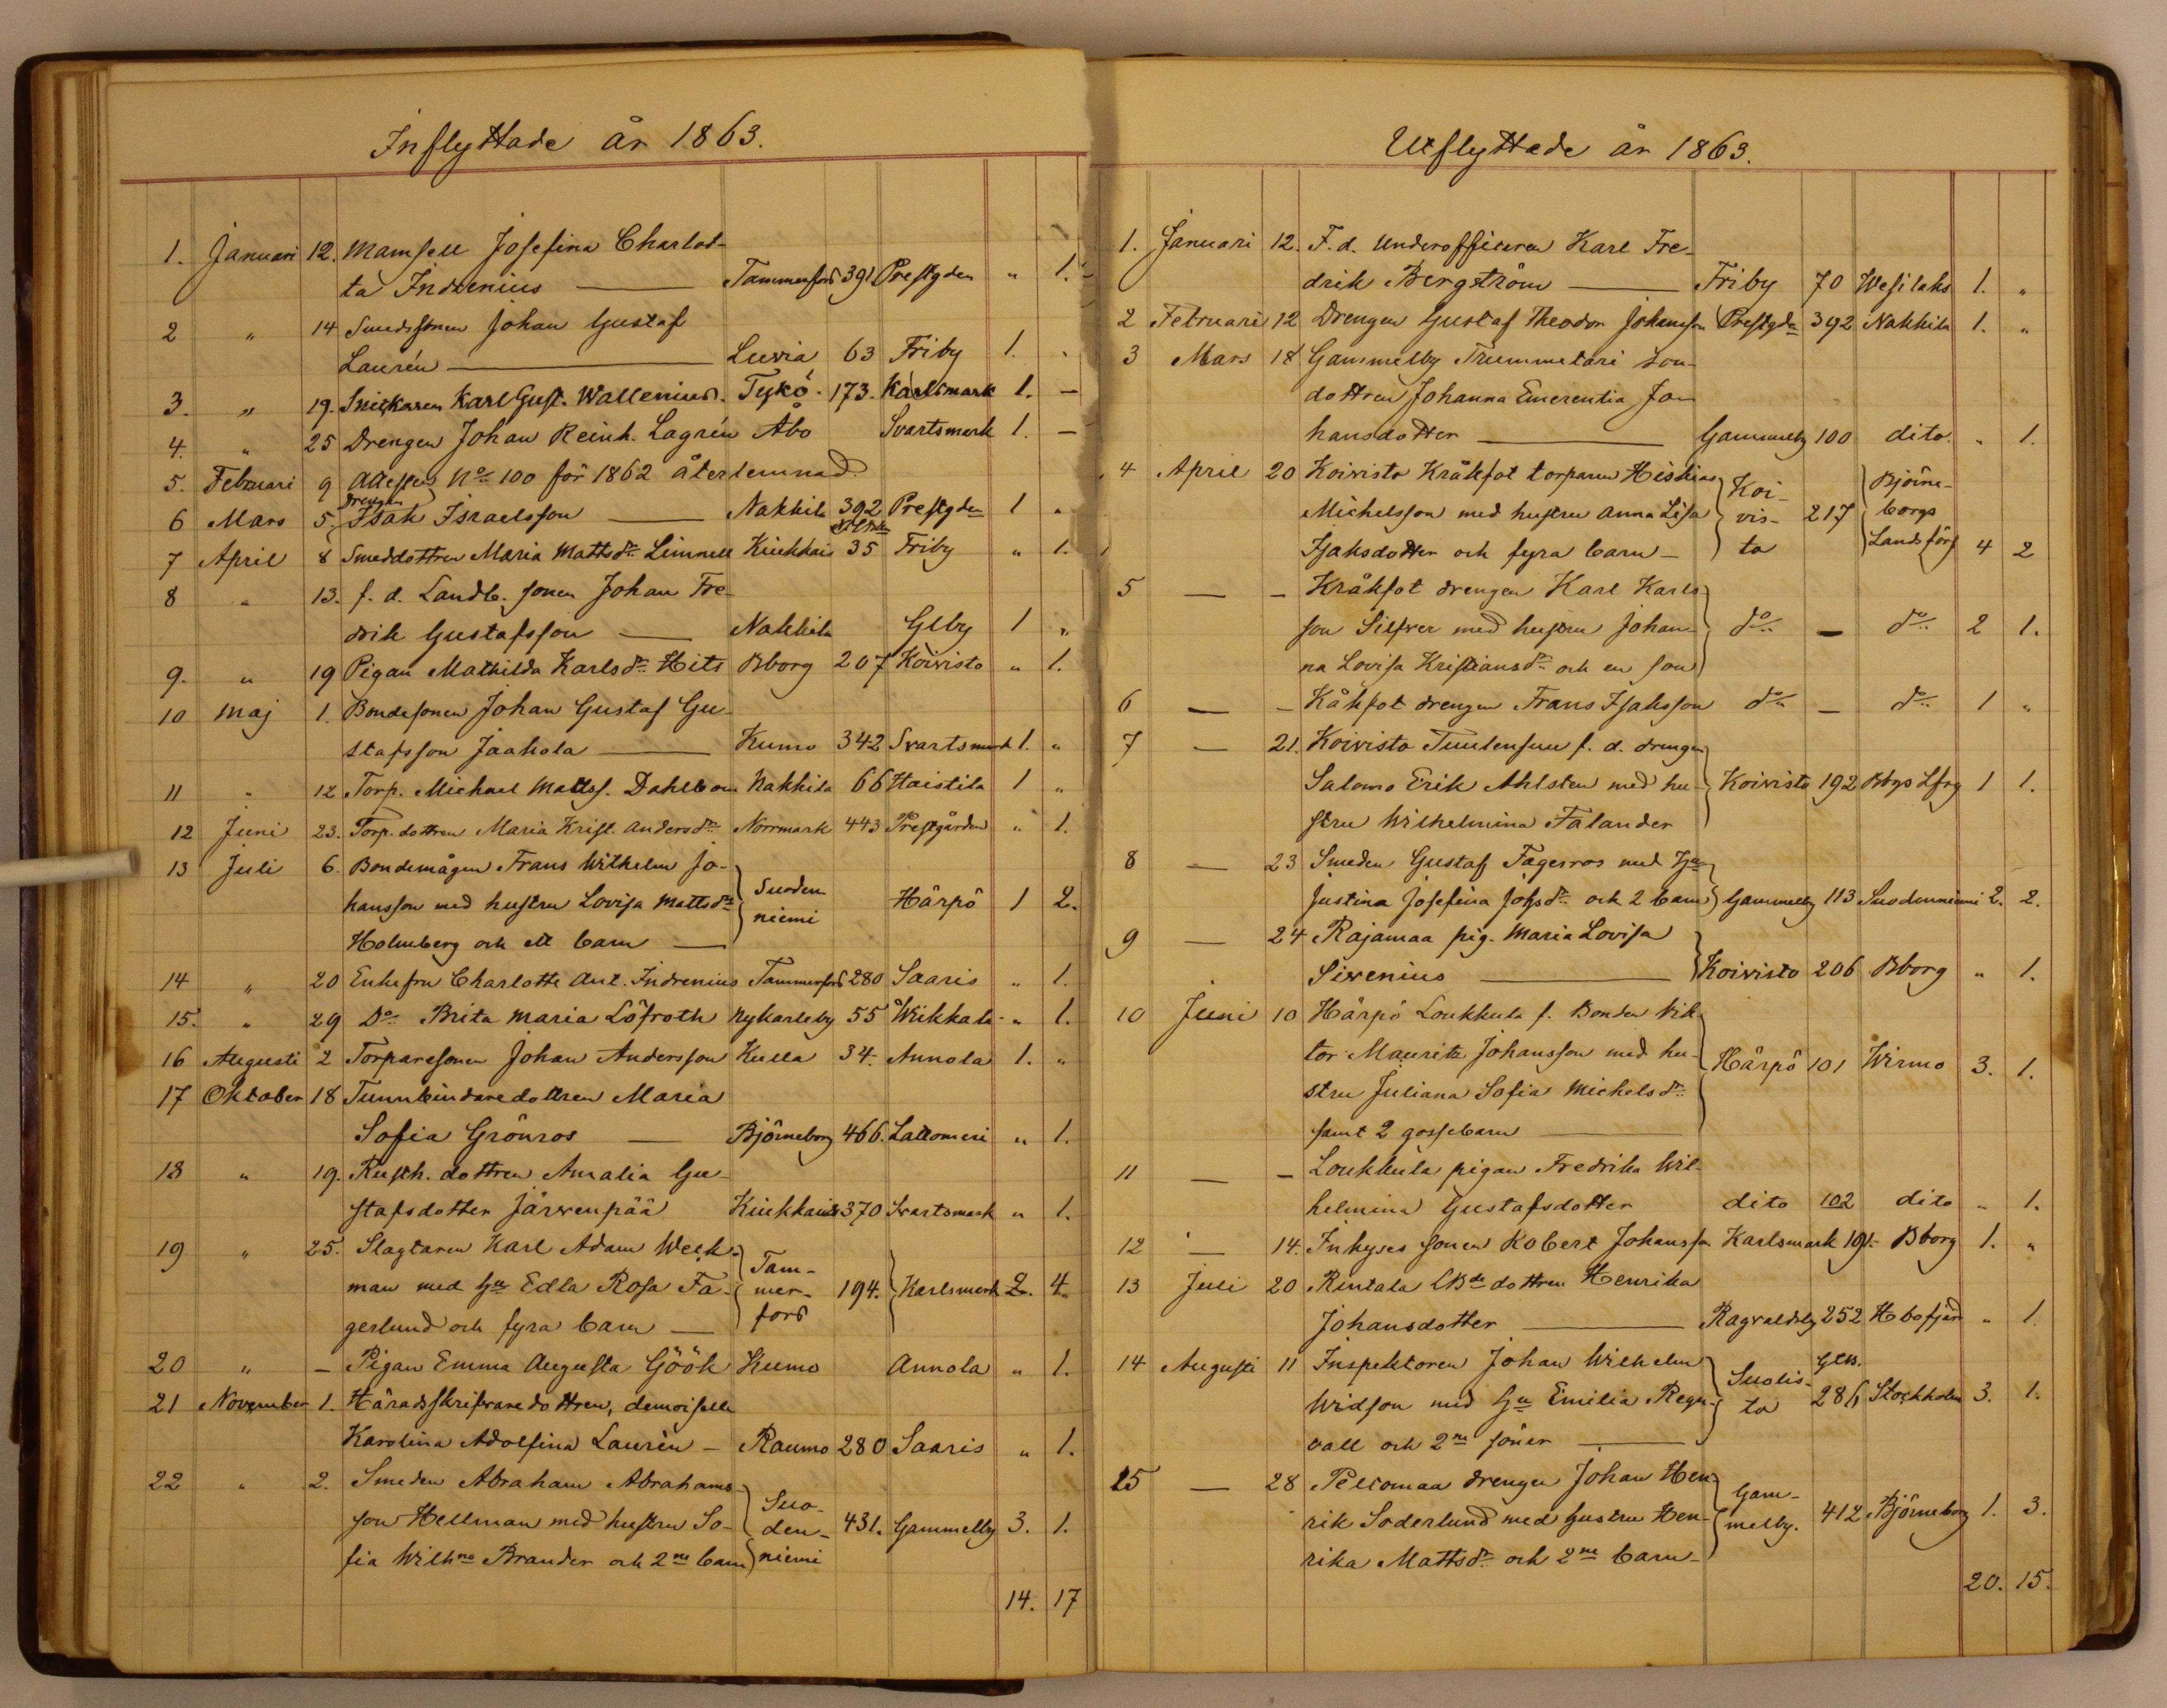 Inflyttade år 1863.
1. Januari 12. Mamsell Josefina Charlot-
ta Indrenius — Tammerfors 391 Prestgden " 1.
2 " 14 Smedssonen Johan Gustaf
Laurén — Luvia 63 Friby 1. "
3. " 19. Snickaren Karl Gust. Wallenius. Tykö. 173. Karlsmark 1. —
4. " 25 Drengen Johan Reinh. Lagrén Åbo Svartsmark 1. —
5. Februari 9 Attesten No 100 för 1862 återlemnad
drengen
6 Mars 5. Isak Israelsson — Nakkila 392 Prestgden 1 "
7 April 8 Smeddottren Maria Mattsdr Linnell Kiukkais 35 Friby " 1.
8 " 13. f. d. Landb. sonen Johan Fre-
drik Gustafsson — Nakkila Glby 1 "
9. " 19 Pigan Mathilda Karlsdr Hits Bborg 207 Koivisto " 1.
10 Maj 1. Bondesonen Johan Gustaf Gu-
stafsson Jaakola — Kumo 342 Svartsmark 1. "
11 " 12 Torp. Michael Mattss. Dahlbom Nakkila 66 Haistila 1 "
12 Juni 23. Torp. dottren Maria Krist. Andersdr Norrmark 443 Prestgården " 1.
13 Juli 6. Bondemågen Frans Wilhelm Jo-
hansson med hustru Lovisa Mattsdr Suoden
niemi Härpö 1 2.
Holmberg och ett barn —
14 " 20 Enkefru Charlotte Ant. Indrenius Tammerfors 280 Saaris " 1.
15. " 29 Do Brita Maria Löfroth Nykarleby 55 Wiikkala " 1.
16 Augusti 2 Torparesonen Johan Andersson Kulla 34. Annola 1. "
17 Oktober 18 Tunnbindaredottren Maria
Sofia Grönros — Björneborg 466. Lattomeri " 1.
18 " 19. Rusth. dottren Amalia Gu-
stafsdotter Järvenpää Kiukkais 370 Svartsmark " 1.
19 " 25. Slagtaren Karl Adam Weck-
man med hu Edla Rosa Fa-
gerlund och fyra barn — Tam-
mer-
fors 194. Karlsmark 2. 4.
20 " — Pigan Emma Augusta Göök Kumo Annola " 1.
21 November 1. Häradsskrifvaredottren, demoiselle
Karolina Adolfina Laurén — Raumo 280 Saaris " 1.
22 " 2. Smeden Abraham Abrahams-
son Hellman med hustru So-
fia Wilhna Brander och 2ne barn Suo-
den-
niemi 431. Gammelby 3. 1.
14. 17
Utflyttade år 1863.
1. Januari 12. F. d. Underofficeren Karl Fre-
drik Bergström — Friby 70 Wesilaks 1. "
2 Februari 12 Drengen Gustaf Theodor Johansson Prestgdn 392 Nakkila 1. "
3 Mars 18 Gammelby Trummetari son-
dottren Johanna Emerentia Jo-
hansdotter — Gammelby 100 dito. " 1.
4 April 20 Koivisto Kråkfot torparen Hiskias
Michelsson med hustru Anna Lisa
Isaksdotter och fyra barn — Koi-
vis-
to 217 Björne-
borgs
Landsförs 4 2
5 — — Kråkfot drengen Karl Karls-
son Silfver med hustru Johan-
na Lovisa Kristiansdr och en son do — do 2 1.
6 — — Kåkfot drengen Frans Isaksson do — do 1 "
7 — 21. Koivisto Tuulensuu f. d. drengen
Salomo Erik Ahlsten med hu-
stru Wilhelmina Falander Koivisto 192 Bbgs Lfrg 1 1.
8 — 23 Smeden Gustaf Fagerros med hu
Justina Josefina Johsdr och 2 barn Gammelby 113 Suodenniemi 2. 2.
9 — 24 Rajamaa pig. Maria Lovisa
Sirenius — Koivisto 206 Bborg " 1.
10 Juni 10 Härpö Loukkula f. Bonden Vik-
tor Mauritz Johansson med hu-
stru Juliana Sofia Michelsdr
samt 2 gossebarn — Härpö 101 Wirmo 3. 1.
11 — — Loukkula pigan Fredrika Wil-
helmina Gustafsdotter dito 102 dito " 1.
12 — 14. Inhyses sonen Robert Johansson Karlsmark 191. Bborg 1. "
13 Juli 20 Rintala LBde dottren Henrika
Johansdotter — Ragvaldsby 252 Hbofjärd " 1.
14 Augusti 11 Inspektoren Johan Wilhelm
Widson med hu Emilia Regn-
vall och 2ne söner — Suolis-
to Glb. 286 Stockholm 3. 1.
15 — 28 Peltomaa drengen Johan Hen-
rik Soderlund med hustru Hen-
rika Mattsdr och 2ne barn — Gam-
melby. 412 Björneborg 1. 3.
20. 15.